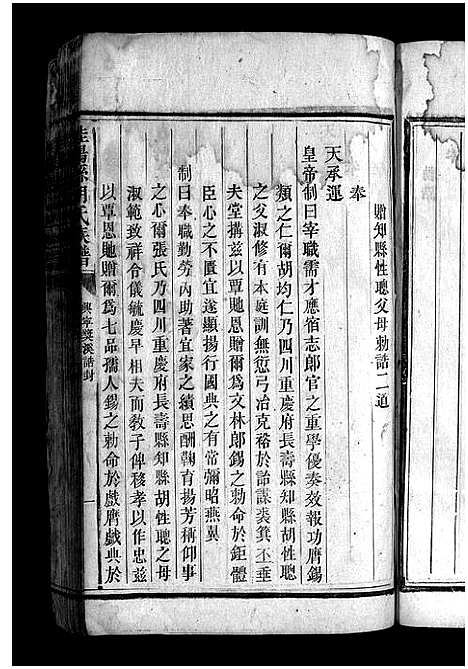 贈知縣性聰父母勅誥二道
奉
天承運
皇帝制曰宰職需才應宿志郎官之重學優奏效報功膺錫
類之仁爾胡均仁乃四川重慶府長壽縣知縣胡性聰
之父淑修有本庭訓無愆弓冶克裕於詒謀裘箕丕垂
夫堂搆茲以覃恩贈爾爲文林郎錫之勅命於鉅體
臣心之不匱宜遂顯揚行國典之有常彌昭燕翼
制曰奉職勤勞內助著宜家之績思酬鞠育揚芳稱仰事
之心爾張氏乃四川重慶府長壽縣知縣胡性聰之母
淑範致祥令儀毓慶早相夫而敎子俾移孝以作忠茲
以覃恩貤贈爾爲七品孺人錫之勅命於戲膺戲典於
桂陽縣胡氏族譜
興寧獎溪誥封
一